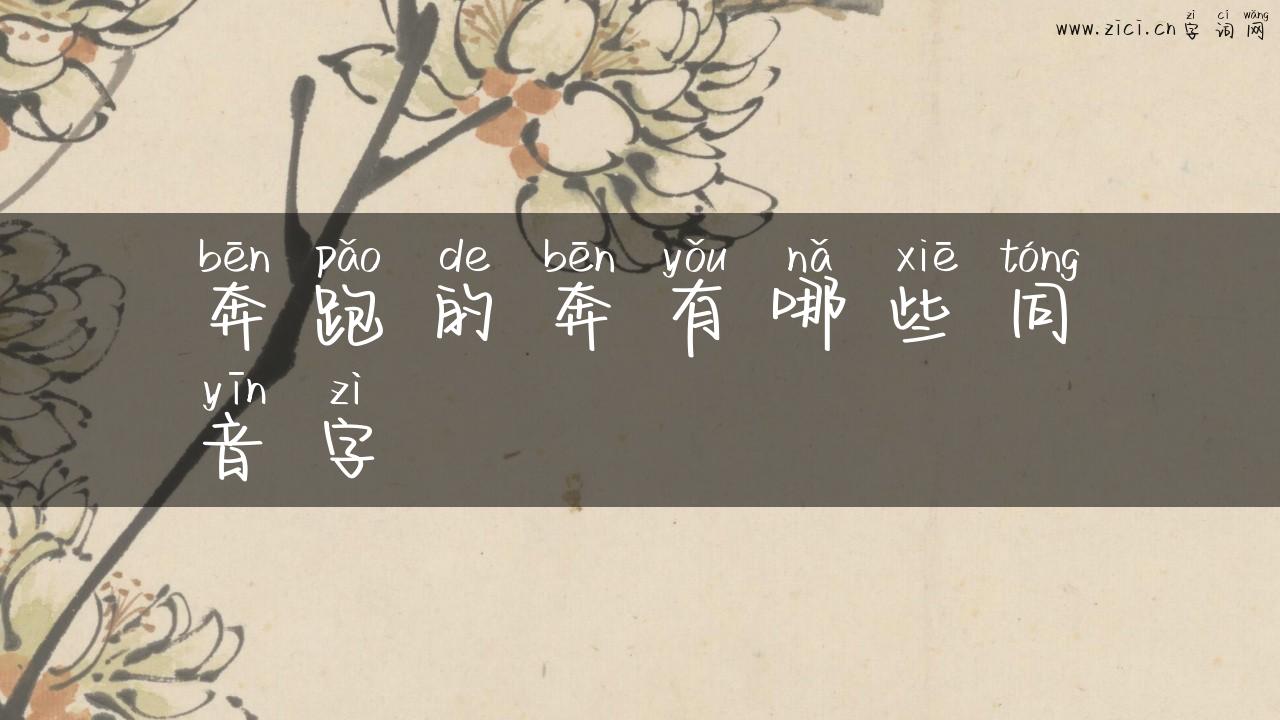 zì cí wǎng
www.zici.cn 字 词 网
bēn pǎo de bēn yǒu nǎ xiē tóng
奔 跑 的 奔 有 哪 些 同
yīn zì
音 字